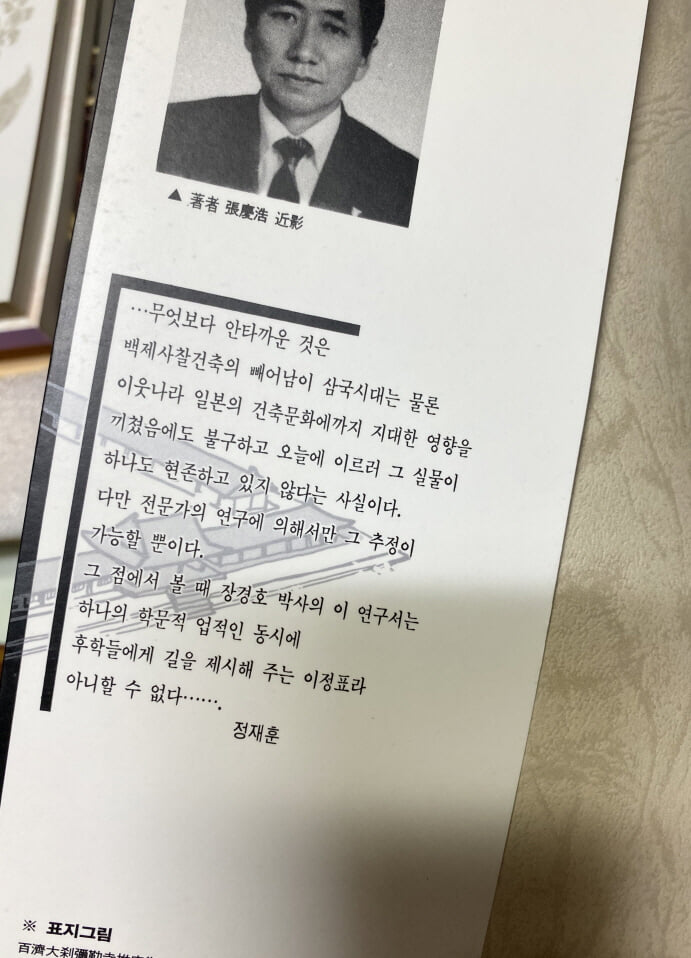 ▲ 著者 張慶浩 近影
…무엇보다 안타까운 것은
백제사찰건축의 빼어남이 삼국시대는 물론
이웃나라 일본의 건축문화에까지 지대한 영향을
끼쳤음에도 불구하고 오늘에 이르러 그 실물이
하나도 현존하고 있지 않다는 사실이다.
다만 전문가의 연구에 의해서만 그 추정이
가능할 뿐이다.
그 점에서 볼 때 장경호 박사의 이 연구서는
하나의 학문적 업적인 동시에
후학들에게 길을 제시해 주는 이정표라
아니할 수 없다…….
정재훈
※ 표지그림
百濟大刹彌勒寺